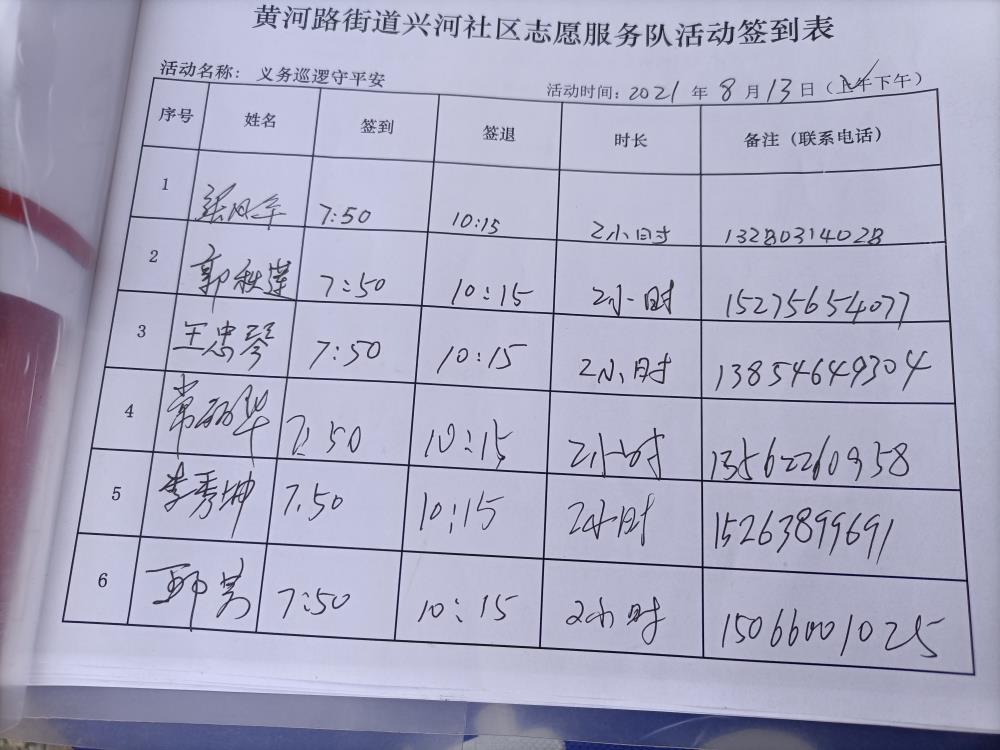 黄河路街道兴河社区志愿服务队活动签到表
活动名称: 义务巡逻守平安 活动时间: 2021 年 8 月 13 日 (上午下午)
序号 姓名 签到 签退 时长 备注 (联系电话)
1 7:50 10:15 2小时 13280314028
2 郭秋莲 7:50 10:15 2小时 15275654077
3 王忠琴 7:50 10:15 2小时 13854649304
4 常丽华 7:50 10:15 2小时 13562260958
5 李秀坤 7.50 10:15 2小时 15263899691
6 7:50 10:15 2小时 15066001025